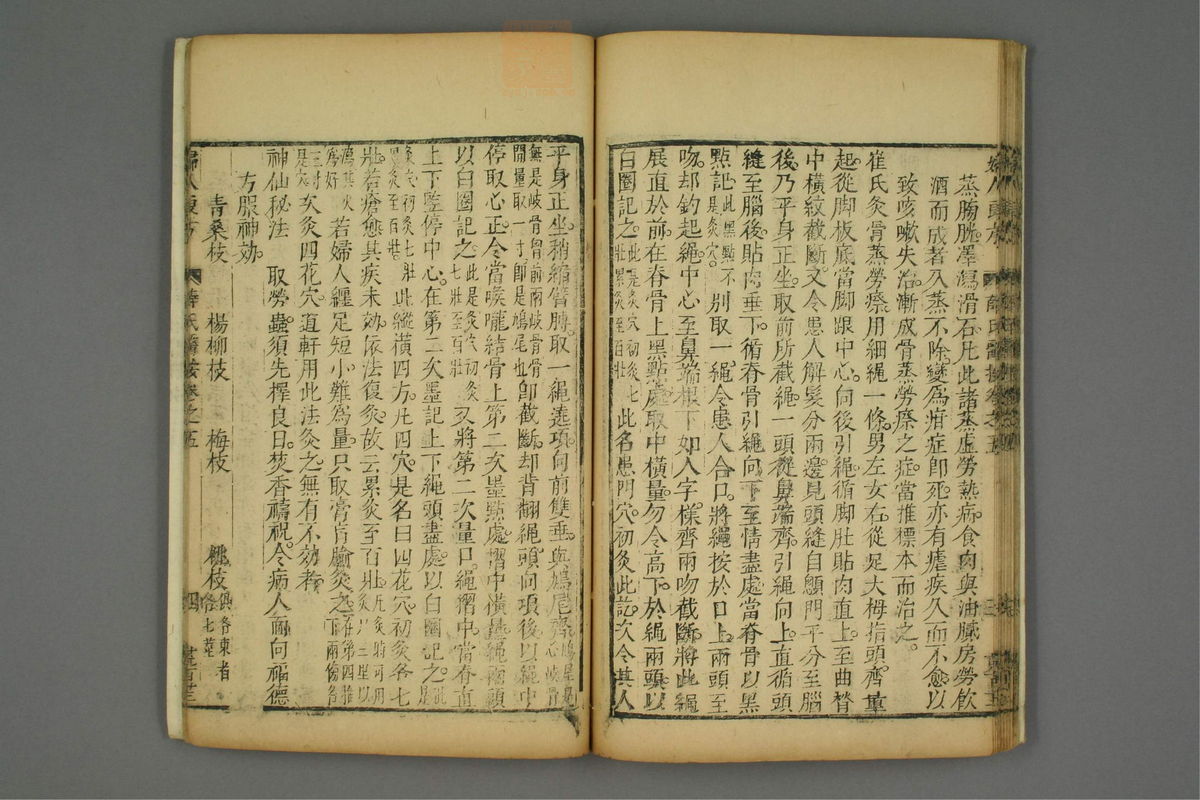 蒸膀胱澤瀉滑石凡此諸蒸虛勞熱病食肉與油膩房勞飲
酒而成者久蒸不除變爲疳症卽死亦有瘧疾久而不愈以
致咳嗽失治漸成骨蒸勞瘵之症當推標本而治之
崔氏灸骨蒸勞瘵用細繩一條男左女右從足大拇指頭齊量
起從脚板底當脚跟中心向後引繩循脚肚貼肉直上至曲䐐
中橫紋截斷又令患人解髮分兩邊見頭縫自顖門平分至腦
後乃平身正坐取前所截繩一頭從鼻端齊引繩向上直循頭
縫至腦後貼肉垂下循脊骨引繩向下至繩盡處當脊骨以黑
點記此黑點不是灸穴別取一繩令患人合口將繩按於口上兩頭至
吻却鈎起繩中心至鼻端根下如人字樣齊兩吻截斷將此繩
展直於前在脊骨上黑點處取中橫量勿令高下於繩兩頭以
白圈記之此是灸穴初灸七壯累灸至百壯此名患門穴初灸此訖次令其人
平身正坐稍縮臂膊取一繩遶項向前雙垂與鳩尾齊鳩尾是心岐骨
無是岐骨者前兩岐骨開量取一寸卽是鳩尾也卽截斷却背翻繩頭向項後以繩中
停取心正令當喉嚨結骨上第二次墨點處摺中橫量繩兩頭
以白圈記之此是灸穴初灸七壯至百壯又將第二次量口繩摺中當脊直
上下竪停中心在第二次墨記上下繩頭盡處以白圈記之此是
灸穴初灸七壯累灸至百壯此縱橫四方凡四穴是名曰四花穴初灸各七
壯若瘡愈其疾未効依法復灸故云累灸至百壯
若婦人纏足短小難爲量只取膏肓腧灸之
次灸四花穴道軒用此法灸之無有不効者
神仙秘法　取勞蟲須先擇良日焚香禱祝令病人面向福德
方服神効
青桑枝　楊柳枝　梅枝　桃枝俱各東者各七莖
婦人良方　薛氏醫按卷之五　四